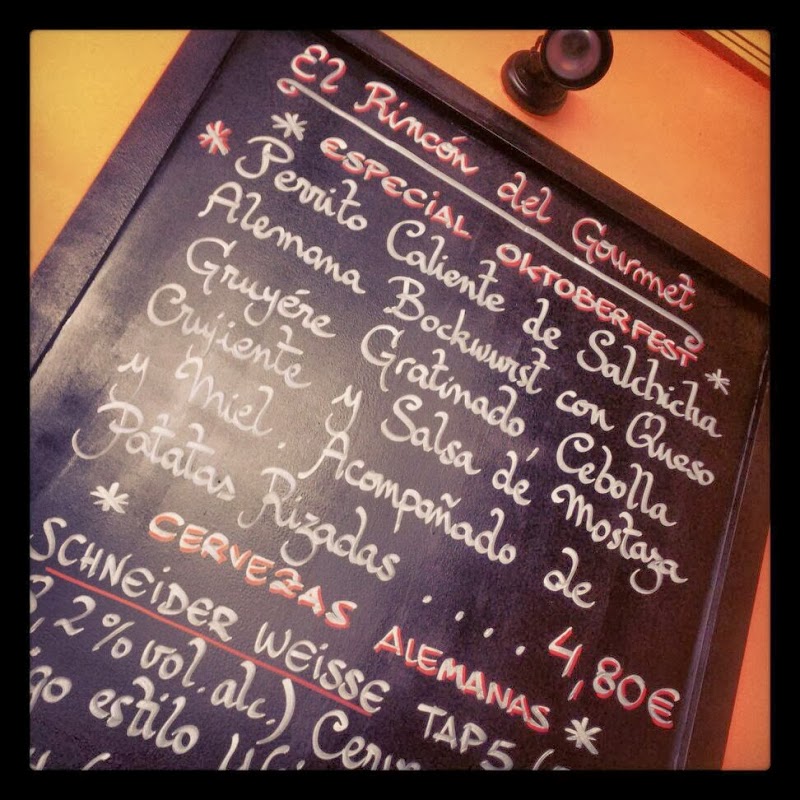 El Rincón del Gourmet
* ESPECIAL OKTOBERFEST *
* Perrito Caliente de Salchicha
Alemana Bockwurst con Queso
Gruyére Gratinado, Cebolla
Crujiente y Salsa de Mostaza
y Miel. Acompañado de
Patatas Rizadas ..... 4,80€
* CERVEZAS ALEMANAS *
SCHNEIDER WEISSE TAP5 (
8,2% vol. alc.)
estilo